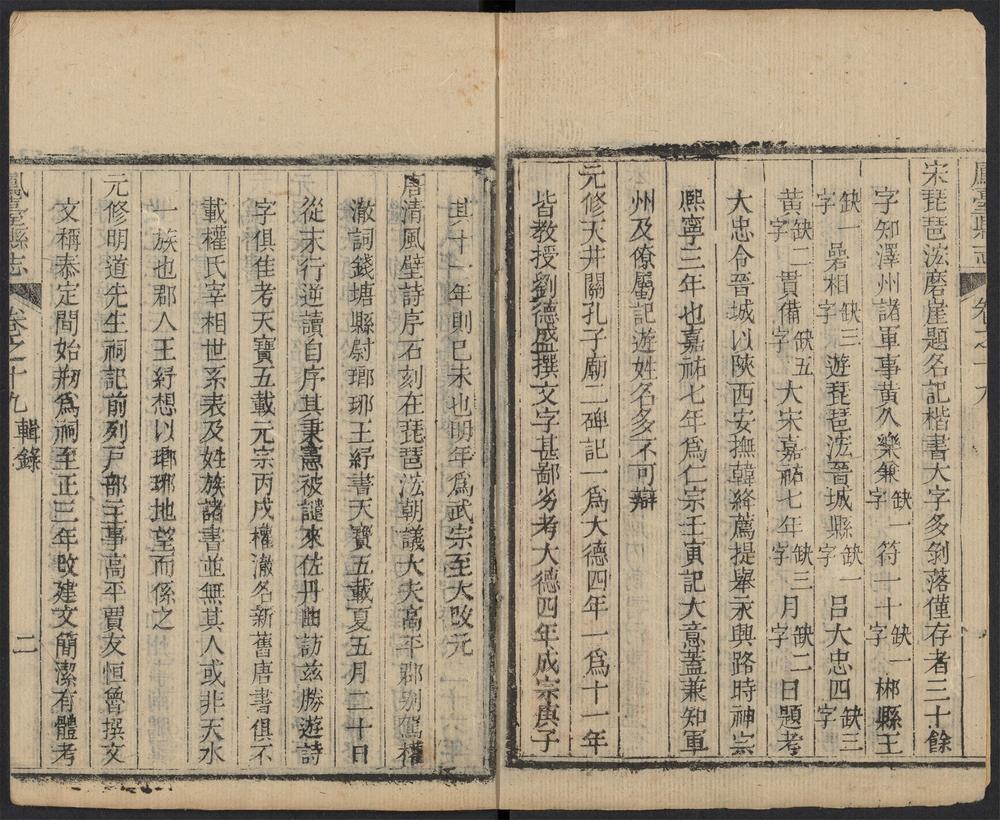 鳳臺縣志
卷之十九
宋琵琶泓磨崖題名記楷書大字多剝落僅存者三十餘
字知澤州諸軍事黃久樂兼缺一字符一十缺一字郴縣王
缺一字礐相缺三字遊琵琶泓晉城縣缺一字呂大忠四缺三字
黃缺一字貫備缺五字大宋嘉祐七年缺三字月缺二字日題考
大忠令晉城以陝西安撫韓絳薦提舉永興路時神宗
熙寧三年也嘉祐七年為仁宗壬寅記大意蓋兼知軍
州及僚屬記遊姓名多不可辯
元修天井關孔子廟二碑記一為大德四年一為十一年
皆教授劉德盛撰文字甚鄙劣考大德四年成宗庚子
其十一年則巳未也明年為武宗至大改元
唐清風壁詩序石刻在琵琶泓朝議大夫高平郡別駕權
澈詞錢塘縣尉瑯琊王紓書天寶五載夏五月二十日
從末行逆讀自序其秉憲被譴來佐丹幽訪茲勝遊詩
字俱佳考天寶五載元宗丙戌權澈名新舊唐書俱不
載權氏宰相世系表及姓族諸書並無其人或非天水
一族也郡人王紓想以瑯琊地望而係之
元修明道先生祠記前列戸部主事高平賈友恒魯撰文
文稱泰定間始剏為祠至正三年改建文簡潔有體考
鳳臺縣志
卷之十九
輯錄
二